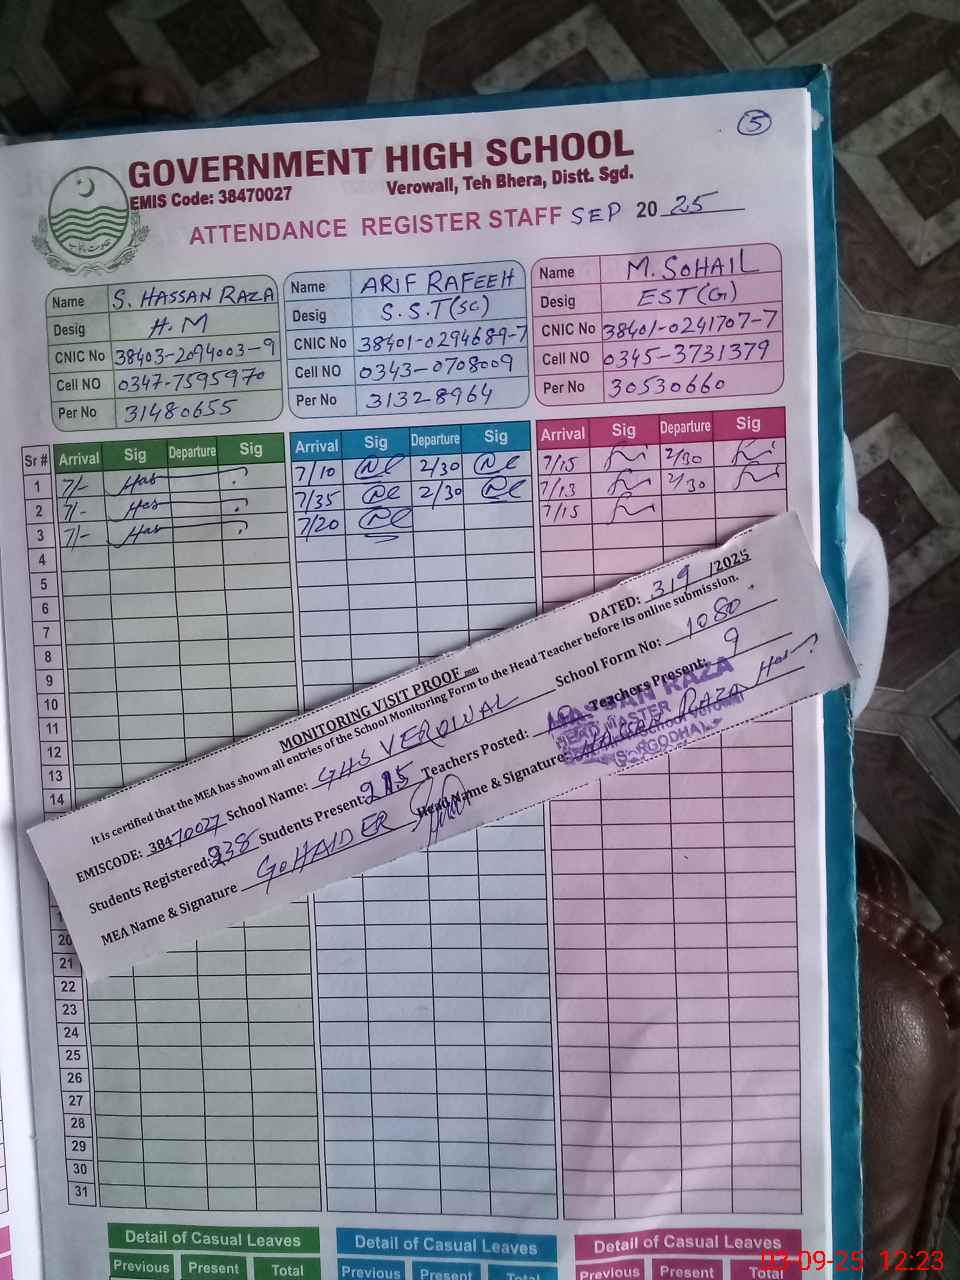 5
GOVERNMENT HIGH SCHOOL
EMIS Code: 38470027
Verowall, Teh Bhera, Distt. Sgd.
ATTENDANCE REGISTER STAFF SEP 2025
Name S. HASSAN RAZA
Desig H.M
CNIC No 38403-2094003-9
Cell NO 0347-7595970
Per No 31480655
Name ARIF RAFEEH
Desig S.S.T(SC)
CNIC No 38401-0294689-7
Cell NO 0343-0708009
Per No 31328964
Name M. SOHAIL
Desig EST(G)
CNIC No 38401-0241707-7
Cell NO 0345-3731379
Per No 30530660
Sr # Arrival Sig Departure Sig Arrival Sig Departure Sig Arrival Sig Departure Sig
1 7/- Has 7/10 2/30 7/15 2/30
2 7/- Has 7/35 2/30 7/13 2/30
3 7/- Has 7/20 7/15
4
5
6
7
8
9
10
11
12
13
14
MONITORING VISIT PROOF
DATED: 3/9/2025
It is certified that the MEA has shown all entries of the School Monitoring Form to the Head Teacher before its online submission.
EMISCODE: 38470027 School Name: GHS VEROWAL School Form No: 1080
Students Registered: 238 Students Present: 215 Teachers Posted: Teachers Present: 9
MEA Name & Signature G. HAIDER Head Name & Signature HASSAN RAZA Has
HASSAN RAZA
HEAD MASTER
SARGODHA
20
21
22
23
24
25
26
27
28
29
30
31
Detail of Casual Leaves Detail of Casual Leaves Detail of Casual Leaves
Previous Present Total Previous Present Total Previous Present Total
03-09-25 12:23